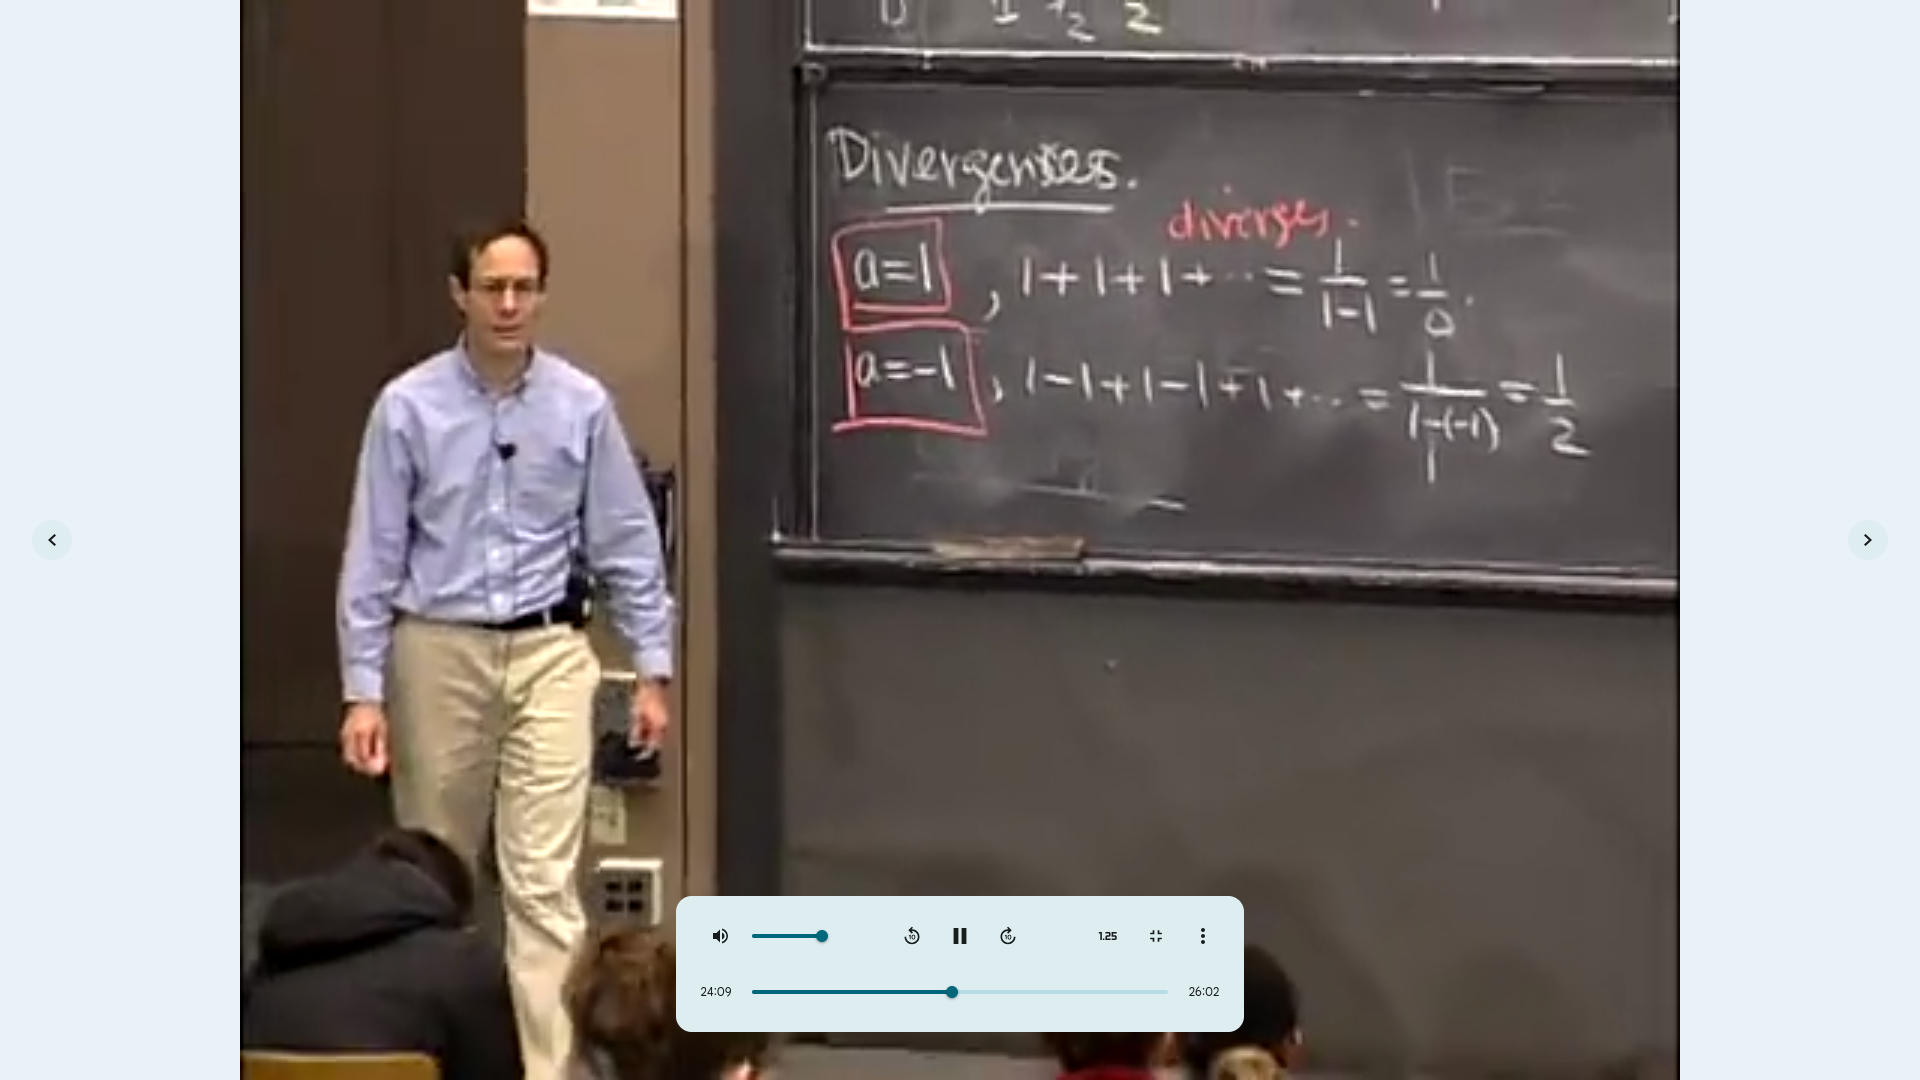 1 1/2 2
Divergences.
diverges.
a=1, 1+1+1+... = 1/(1-1) = 1/0.
a=-1, 1-1+1-1+1+... = 1/(1-(-1)) = 1/2
1.25
24:09 26:02